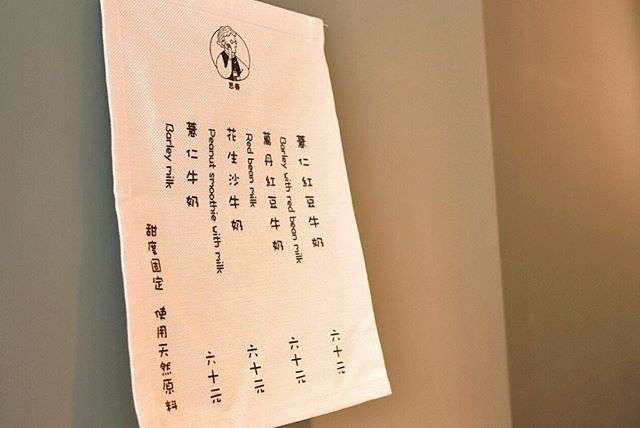 思慕
薏仁紅豆牛奶 六十元
Barley with red bean milk
萬丹紅豆牛奶 六十元
Red bean milk
花生沙牛奶 六十元
Peanut smoothie with milk
薏仁牛奶 六十元
Barley milk
甜度固定 使用天然原料